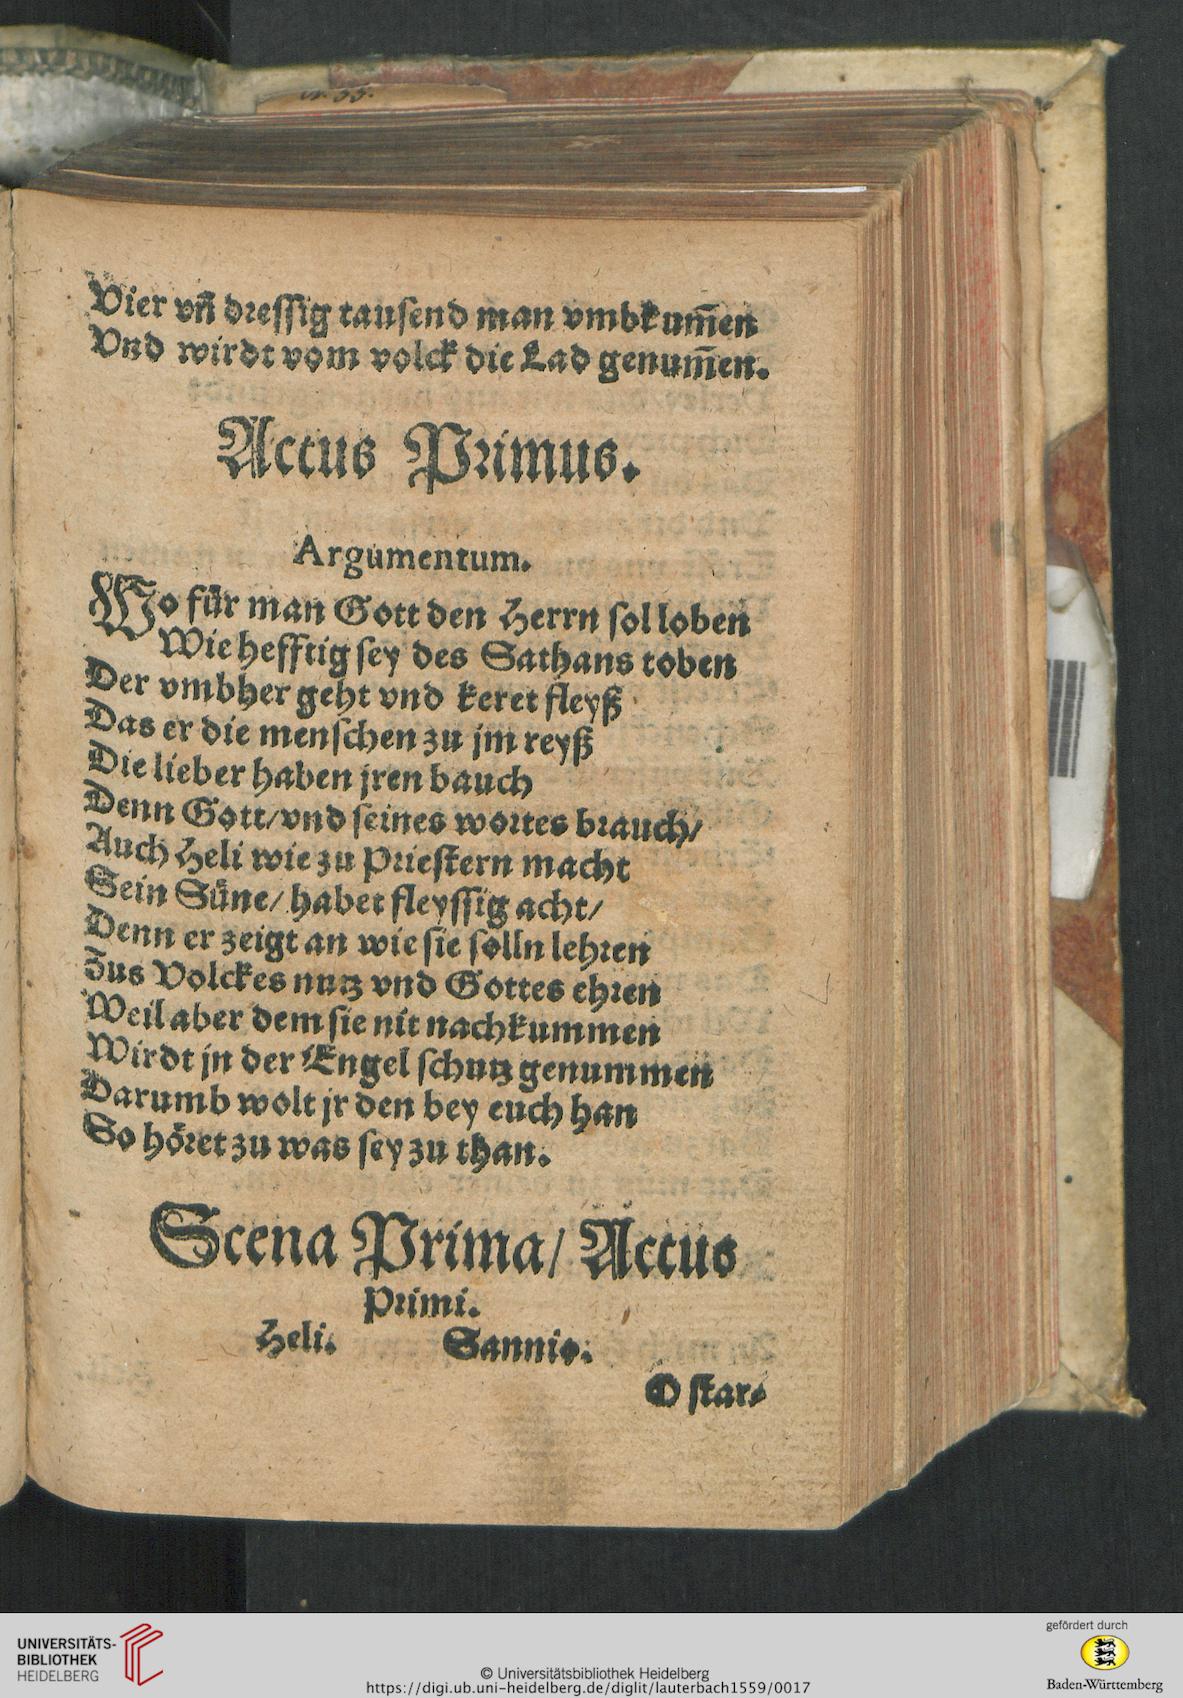 Vier vn̄ dreſſig tauſend man vmbkum̄en
Vnd wirdt vom volck die Lad genum̄en.
Actus Primus.
Argumentum.
Wo für man Gott den Herrn ſol loben
Wie hefftig ſey des Sathans toben
Der vmbher geht vnd keret fleyß
Das er die menſchen zu jm reyß
Die lieber haben jren bauch
Denn Gott/ vnd ſeines wortes brauch/
Auch Heli wie zu Prieſtern macht
Sein Süne/ habet fleyſſig acht/
Denn er zeigt an wie ſie ſolln lehren
Zus Volckes nutz vnd Gottes ehren
Weil aber dem ſie nit nachkummen
Wirdt jn der Engel ſchutz genummen
Darumb wolt jr den bey euch han
So höret zu was ſey zu than.
Scena Prima/ Actus
Primi.
Heli. Sannio.
O ſtar⸗
UNIVERSITÄTS-
BIBLIOTHEK
HEIDELBERG
© Universitätsbibliothek Heidelberg
https://digi.ub.uni-heidelberg.de/diglit/lauterbach1559/0017
gefördert durch
Baden-Württemberg